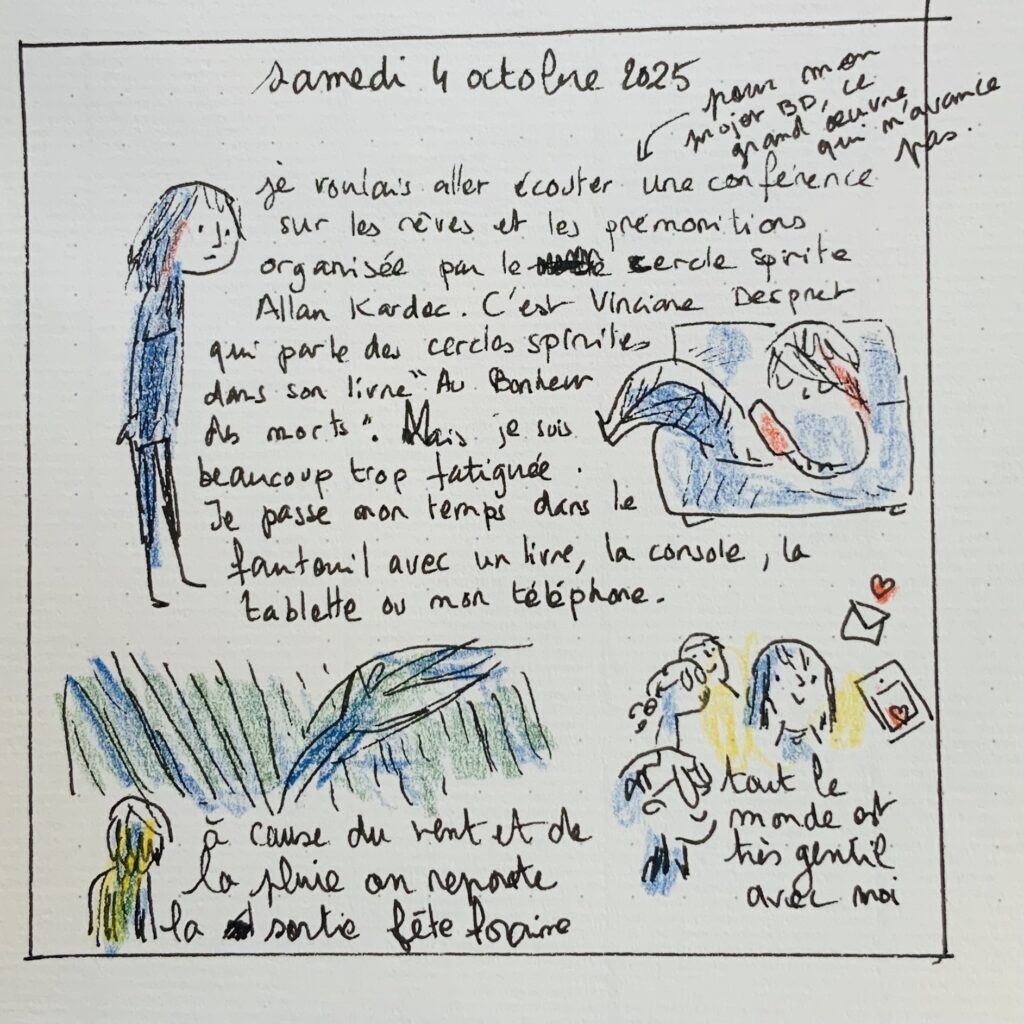 samedi 4 octobre 2025
pour mon
projet BD, ce
grand œuvre
qui n'avance
pas.
je voulais aller écouter une conférence
sur les rêves et les prémonitions
organisée par le cercle spirite
Allan Kardec. C'est Vinciane Despret
qui parle des cercles spirites
dans son livre "Au Bonheur
des morts". Mais je suis
beaucoup trop fatiguée.
Je passe mon temps dans le
fauteuil avec un livre, la console, la
tablette ou mon téléphone.
à cause du vent et de
la pluie on reporte
la sortie fête foraine
tout le
monde est
très gentil
avec moi